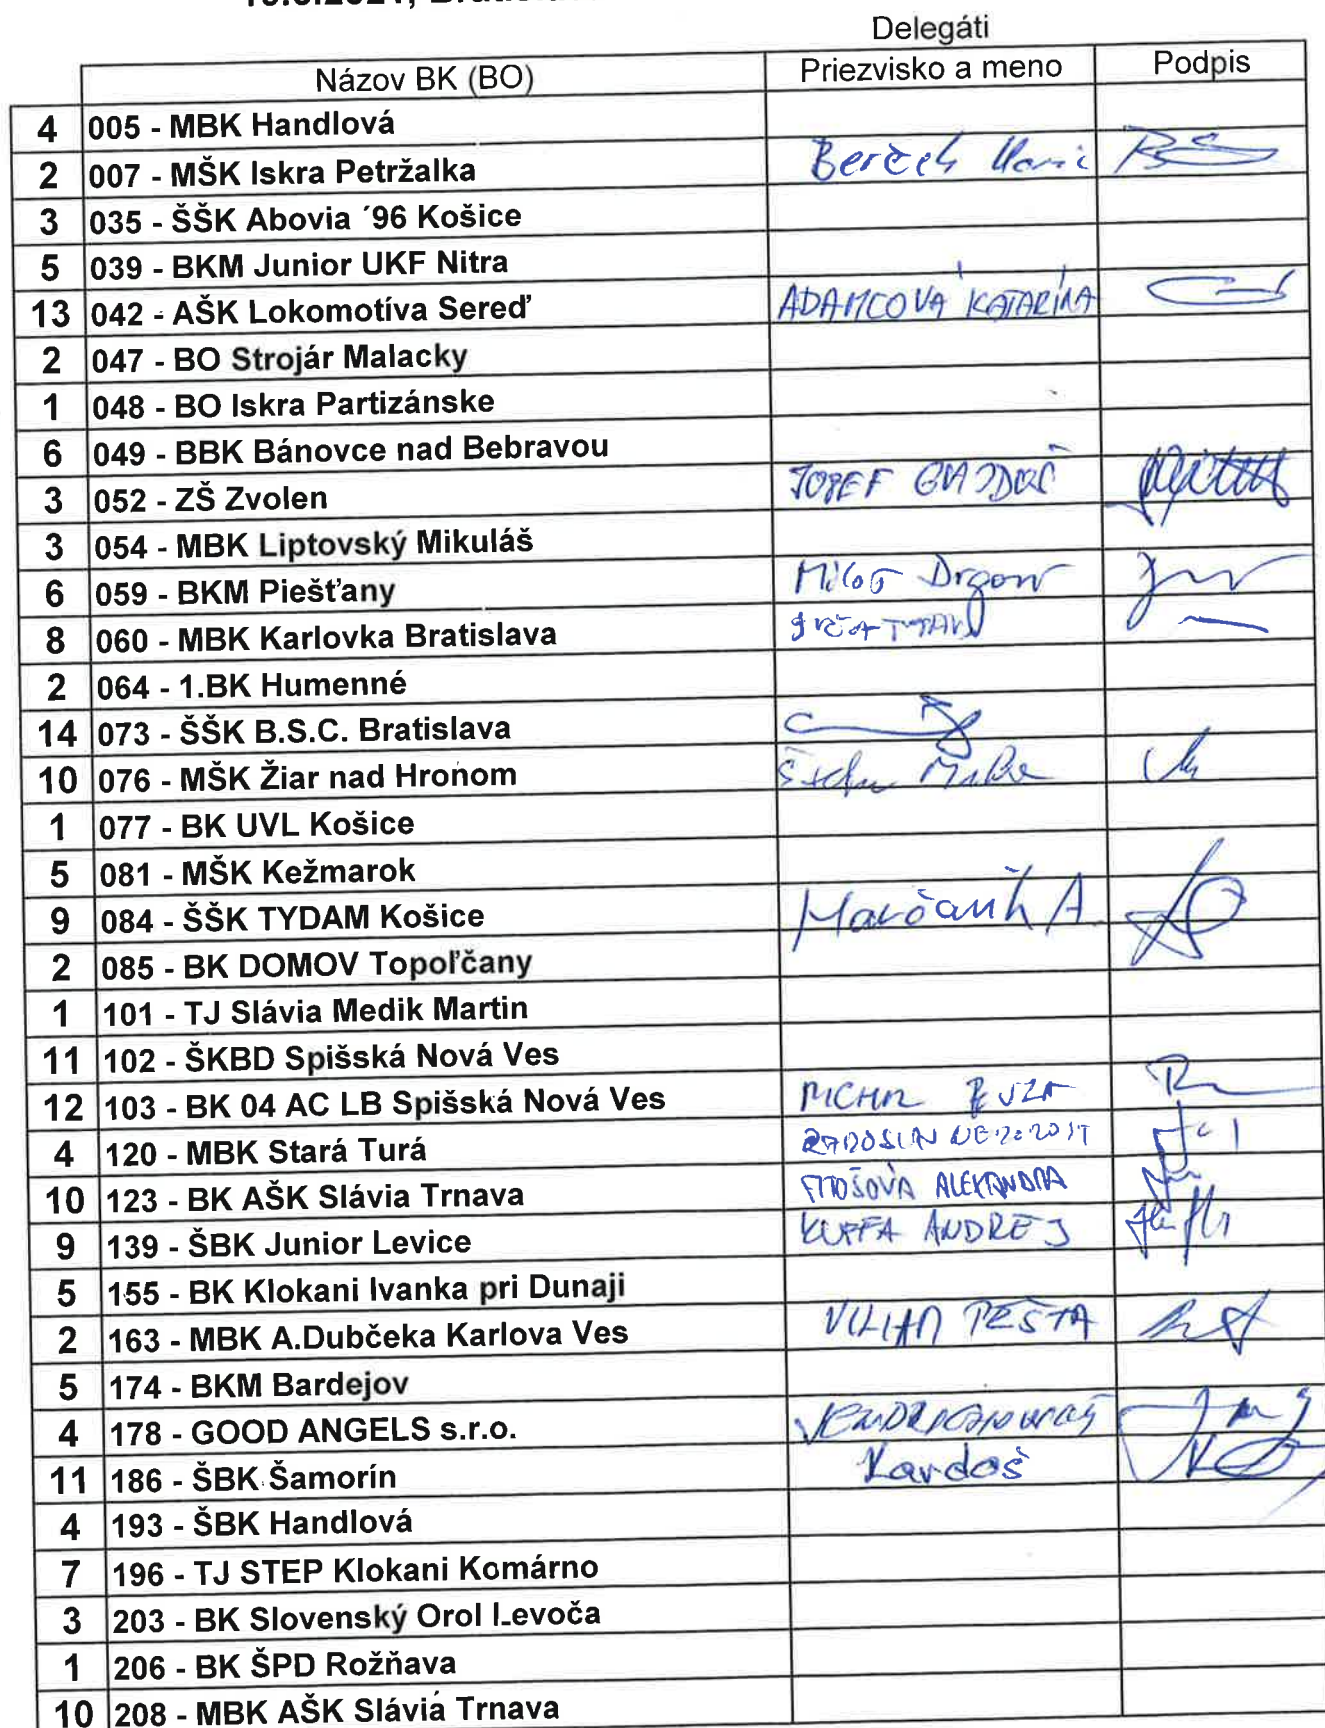 Delegáti
Názov BK (BO) Priezvisko a meno Podpis
4 005 - MBK Handlová
2 007 - MŠK Iskra Petržalka
3 035 - ŠŠK Abovia ´96 Košice
5 039 - BKM Junior UKF Nitra
13 042 - AŠK Lokomotíva Sereď ADAMCOVÁ KATARÍNA
2 047 - BO Strojár Malacky
1 048 - BO Iskra Partizánske
6 049 - BBK Bánovce nad Bebravou
3 052 - ZŠ Zvolen JOZEF GAJDOŠ
3 054 - MBK Liptovský Mikuláš
6 059 - BKM Piešťany Miloš Drgoň
8 060 - MBK Karlovka Bratislava
2 064 - 1.BK Humenné
14 073 - ŠŠK B.S.C. Bratislava
10 076 - MŠK Žiar nad Hronom
1 077 - BK UVL Košice
5 081 - MŠK Kežmarok
9 084 - ŠŠK TYDAM Košice A.
2 085 - BK DOMOV Topoľčany
1 101 - TJ Slávia Medik Martin
11 102 - ŠKBD Spišská Nová Ves
12 103 - BK 04 AC LB Spišská Nová Ves
4 120 - MBK Stará Turá
10 123 - BK AŠK Slávia Trnava ALEXANDRA
9 139 - ŠBK Junior Levice KUFFA ANDREJ
5 155 - BK Klokani Ivanka pri Dunaji
2 163 - MBK A.Dubčeka Karlova Ves
5 174 - BKM Bardejov
4 178 - GOOD ANGELS s.r.o.
11 186 - ŠBK Šamorín Kardoš
4 193 - ŠBK Handlová
7 196 - TJ STEP Klokani Komárno
3 203 - BK Slovenský Orol Levoča
1 206 - BK ŠPD Rožňava
10 208 - MBK AŠK Slávia Trnava